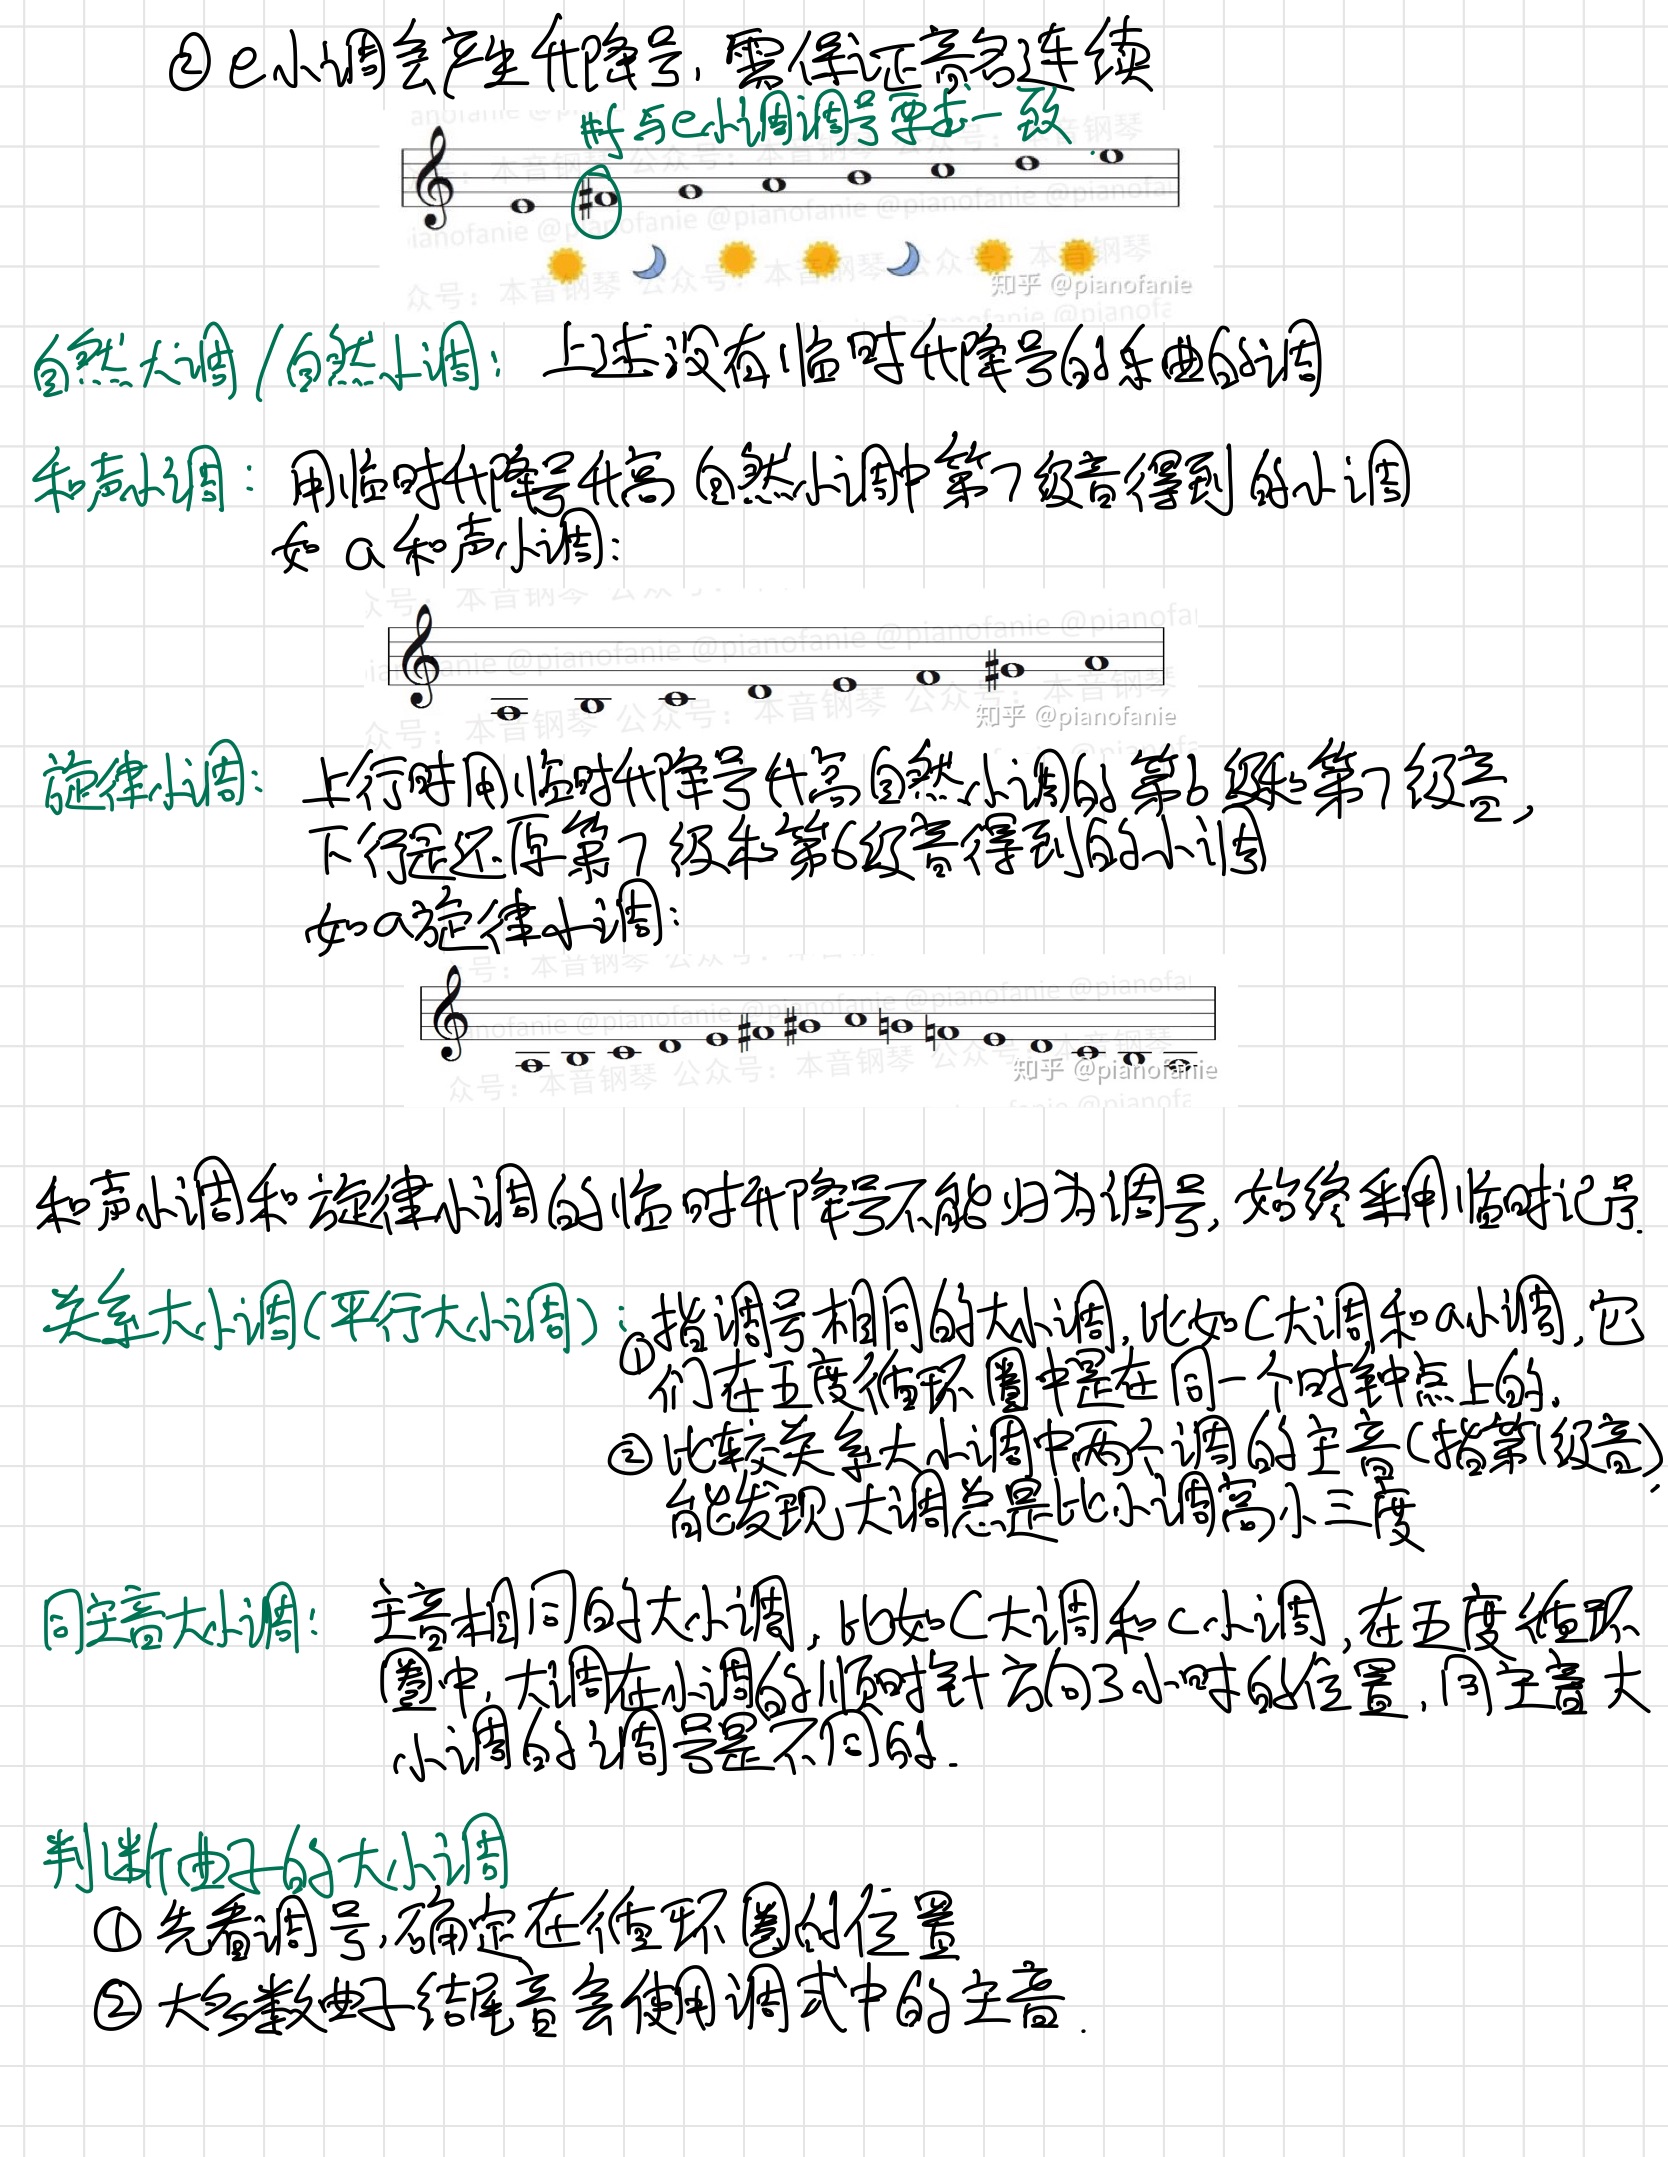 ② e小调会产生升降号, 需保证音名连续
#f与e小调调号要求一致
知乎 @pianofanie
自然大调/自然小调: 上述没有临时升降号的乐曲的调
和声小调: 用临时升降号升高自然小调中第7级音得到的小调
如a和声小调:
知乎 @pianofanie
旋律小调: 上行时用临时升降号升高自然小调的第6级和第7级音,
下行是还原第7级和第6级音得到的小调
如a旋律小调:
知乎 @pianofanie
和声小调和旋律小调的临时升降号不能归为调号, 始终采用临时记号.
关系大小调(平行大小调): ①指调号相同的大小调, 比如C大调和a小调, 它
们在五度循环圈中是在同一个时钟点上的.
② 比较关系大小调中两个调的主音(指第1级音),
能发现大调总是比小调高小三度
同主音大小调: 主音相同的大小调, 比如C大调和c小调, 在五度循环
圈中, 大调在小调的顺时针方向3小时的位置, 同主音大
小调的调号是不同的.
判断曲子的大小调
① 先看调号, 确定在循环圈的位置
② 大多数曲子结尾音会使用调式中的主音.